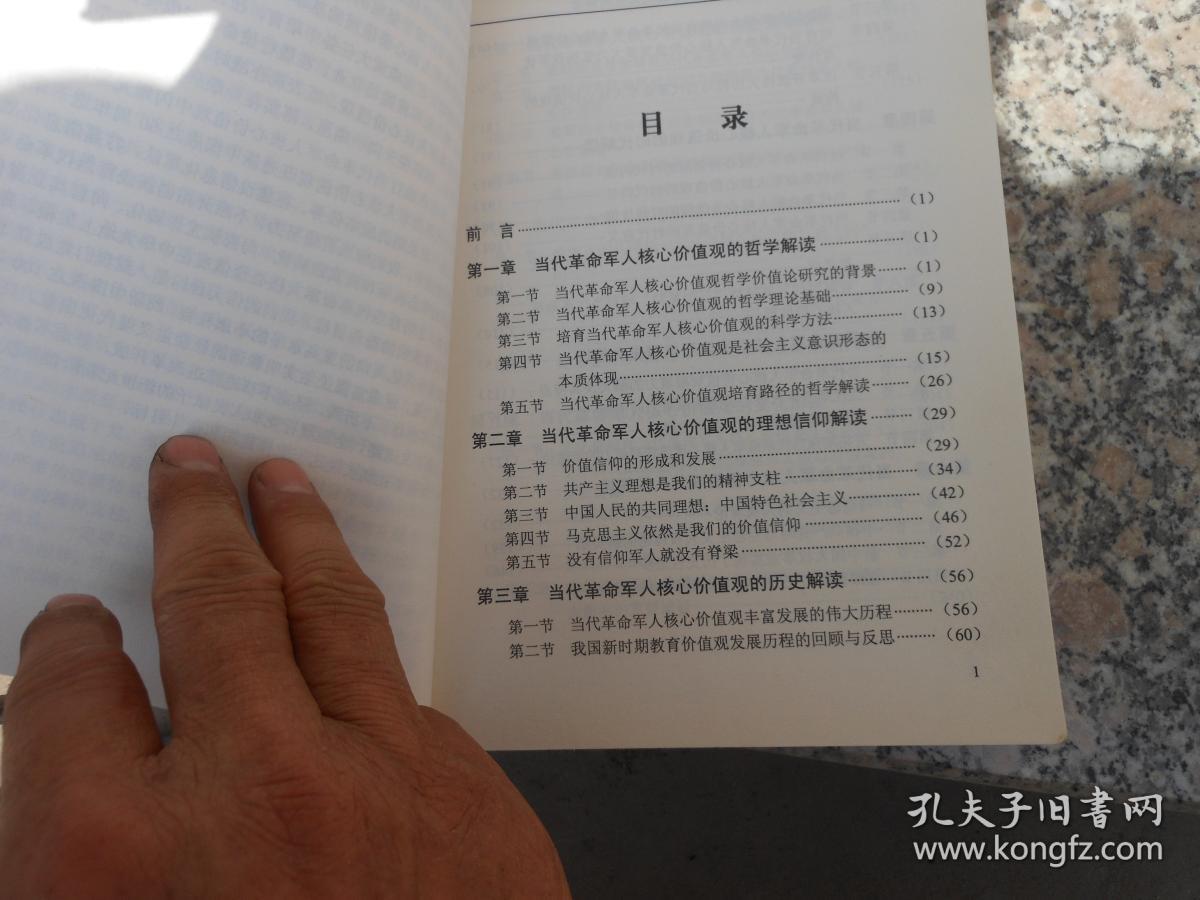 目　录
前　言……………………………………………………（1）
第一章　当代革命军人核心价值观的哲学解读………………（1）
第一节　当代革命军人核心价值观哲学价值论研究的背景……（1）
第二节　当代革命军人核心价值观的哲学理论基础……………（9）
第三节　培育当代革命军人核心价值观的科学方法……………（13）
第四节　当代革命军人核心价值观是社会主义意识形态的
本质体现……………………………………………（15）
第五节　当代革命军人核心价值观培育路径的哲学解读………（26）
第二章　当代革命军人核心价值观的理想信仰解读………（29）
第一节　价值信仰的形成和发展…………………………………（29）
第二节　共产主义理想是我们的精神支柱………………………（34）
第三节　中国人民的共同理想：中国特色社会主义……………（42）
第四节　马克思主义依然是我们的价值信仰……………………（46）
第五节　没有信仰军人就没有脊梁………………………………（52）
第三章　当代革命军人核心价值观的历史解读………………（56）
第一节　当代革命军人核心价值观丰富发展的伟大历程………（56）
第二节　我国新时期教育价值观发展历程的回顾与反思………（60）
1
孔夫子旧书网
www.kongfz.com